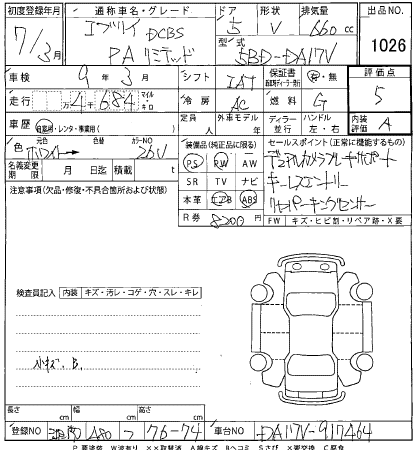 初度登録年月 通称車名・グレード ドア 形状 排気量 出品NO.
7/3月 エブリイ DCBS 5 V 660cc 1026
PA リミテッド 型式 5BD-DA17V
車検 9年 3月 シフト IAT 保証書 有・無 評価点
走行 4千684 マイル・キロ 冷房 AC 燃料 G 5
車歴 自家用・レンタ・事業用( ) 定員 人 外車モデル 年 ディーラー・並行 ハンドル 左・右 内装評価 A
色 元色 ホワイト → 色替 カラーNO 26U
名義変更期限 月 日迄 積載 t
装備品(純正品に限る) セールスポイント(正常に機能するもの)
PS PW AW デュアルカメラブレーキサポート
SR TV ナビ キーレスエントリー
本革 エアB ABS リヤパーキングセンサー
R券 8200円 FW キズ・ヒビ割・リペア跡・X要
注意事項(欠品・修復・不具合箇所および状態)
検査員記入 内装 キズ・汚レ・コゲ・穴・スレ・キレ
小キズ、B.
長さ cm 幅 cm 高さ cm
登録NO 480 つ 76-74 車台NO DA17V-917464
P要塗装 W波有り ××取替済 A線キズ Bヘコミ Sさび X要交換 C腐食